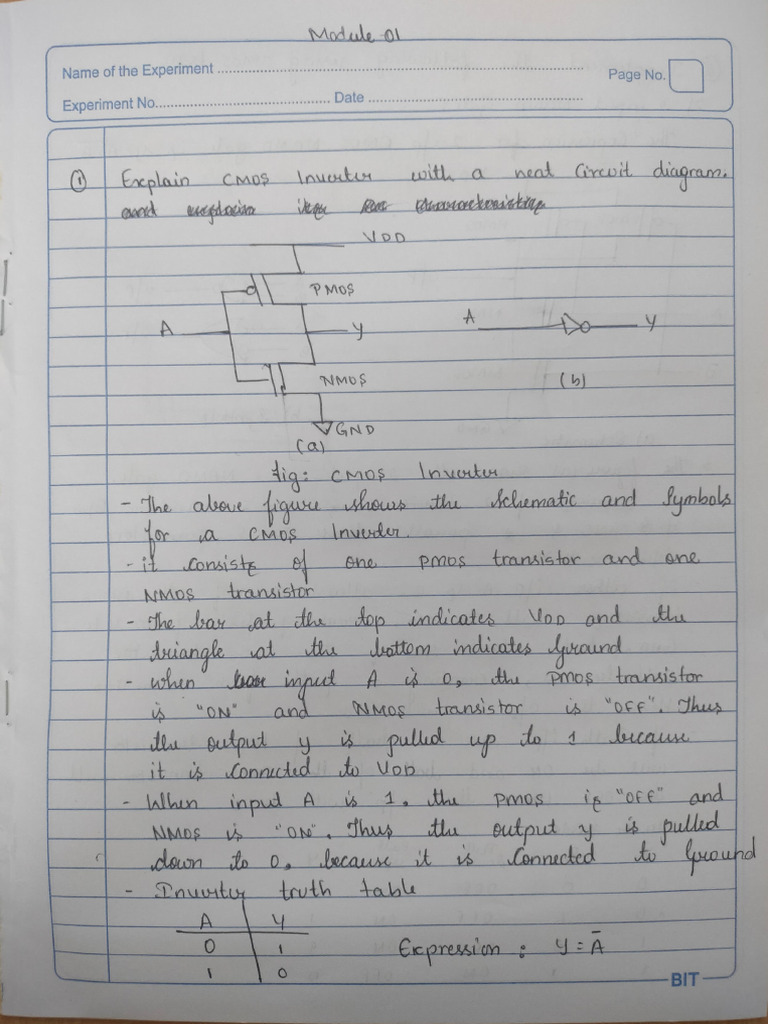 Module-01
Name of the Experiment
Page No.
Experiment No. Date
① Explain CMOS Inverter with a neat Circuit diagram.
and explain its characteristics
VDD
PMOS
A Y A Y
NMOS (b)
GND
(a)
Fig: CMOS Inverter
- The above figure shows the schematic and symbols
for a CMOS Inverter.
- it consists of one PMOS transistor and one
NMOS transistor
- The bar at the top indicates VDD and the
triangle at the bottom indicates Ground
- when input A is 0, the PMOS transistor
is "ON" and NMOS transistor is "OFF". Thus
the output y is pulled up to 1 because
it is Connected to VDD
- When input A is 1, the PMOS is "OFF" and
NMOS is "ON". Thus the output y is pulled
down to 0, because it is Connected to Ground
- Inverter truth table
A Y
0 1 Expression : Y = A̅
1 0
BIT